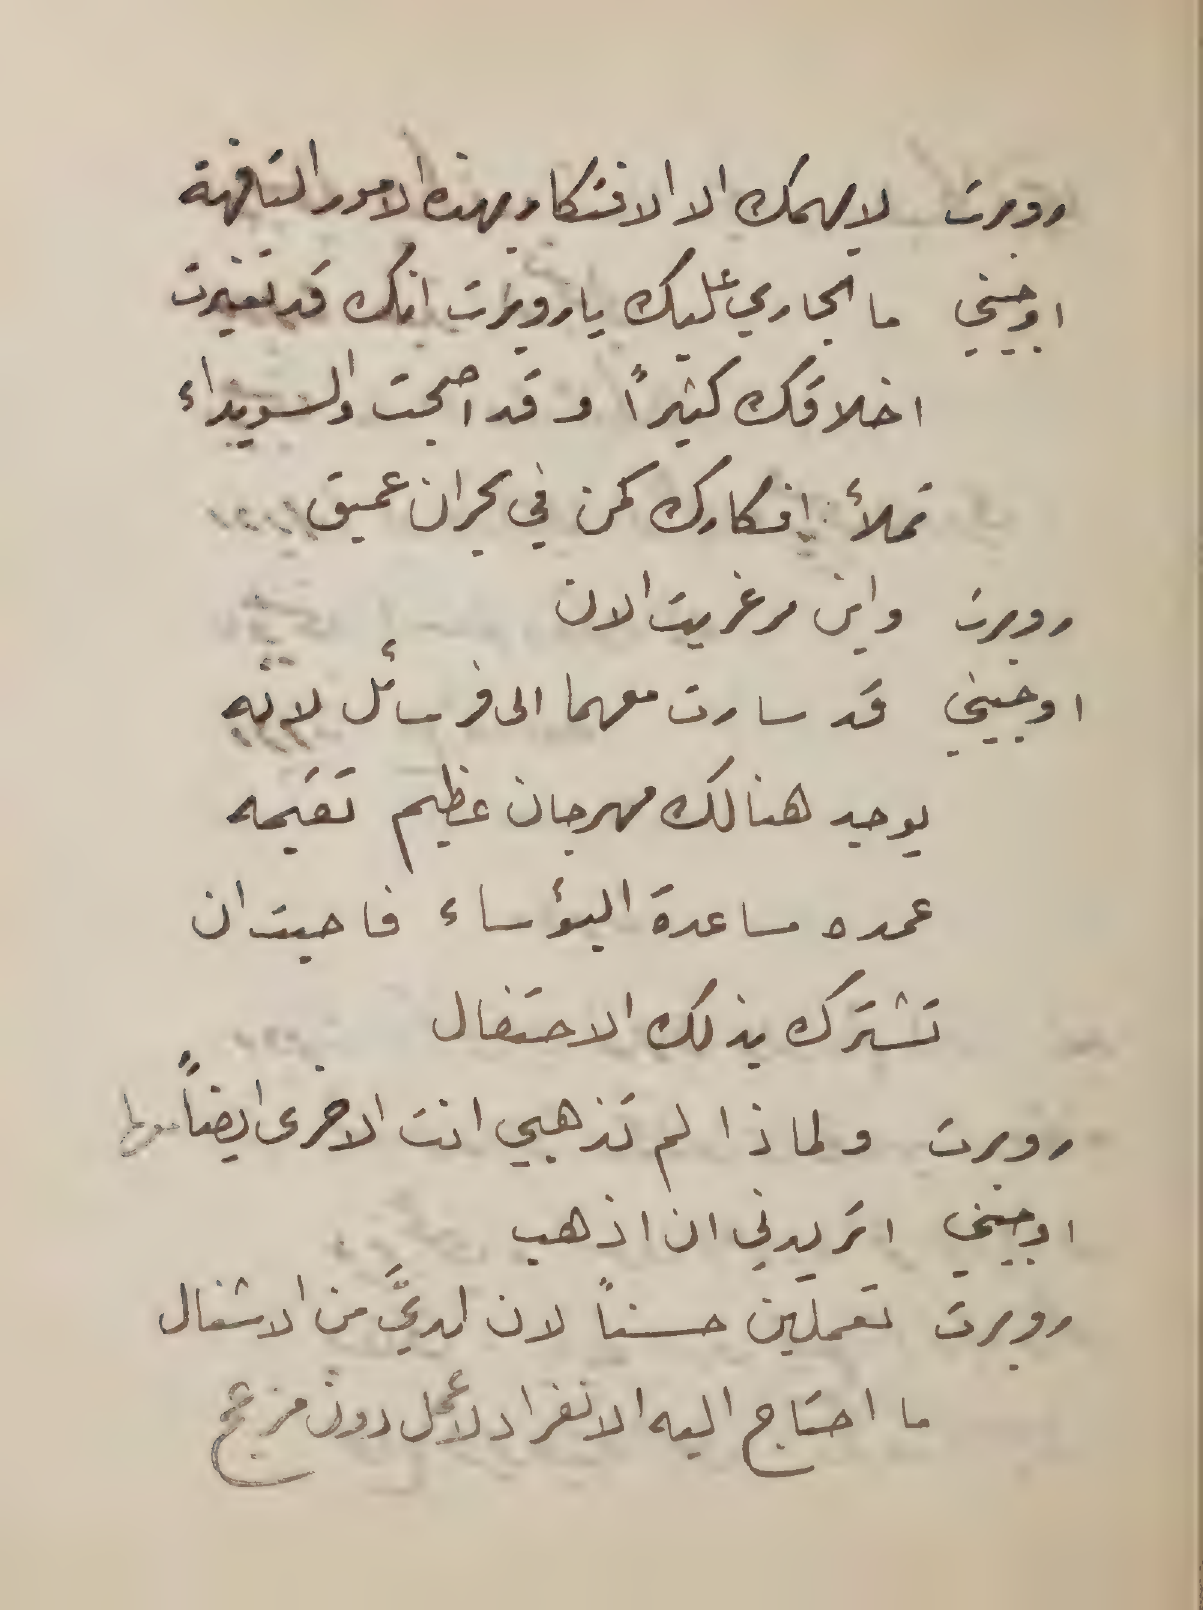 روبرت لا يهمك الا الافتكار بهذه الامور التافهة
اوجيني ما الجاري عليك يا روبرت انك قد تغيرت
اخلاقك كثيراً وقد اصبحت والسويداء
تملأ افكارك كمن في بحران عميق
روبرت واين مرغريت الان
اوجيني قد سارت معهما الى فرسائل لانه
يوجد هنالك مهرجان عظيم تقيمه
عمده مساعدة البؤساء فاحبت ان
تشترك بذلك الاحتفال
روبرت ولماذا لم تذهبي انت الاخرى ايضاً
اوجيني اتريدني ان اذهب
روبرت تعملين حسناً لان لديَّ من الاشغال
ما احتاج اليه الانفراد لأعمل دون مزعج